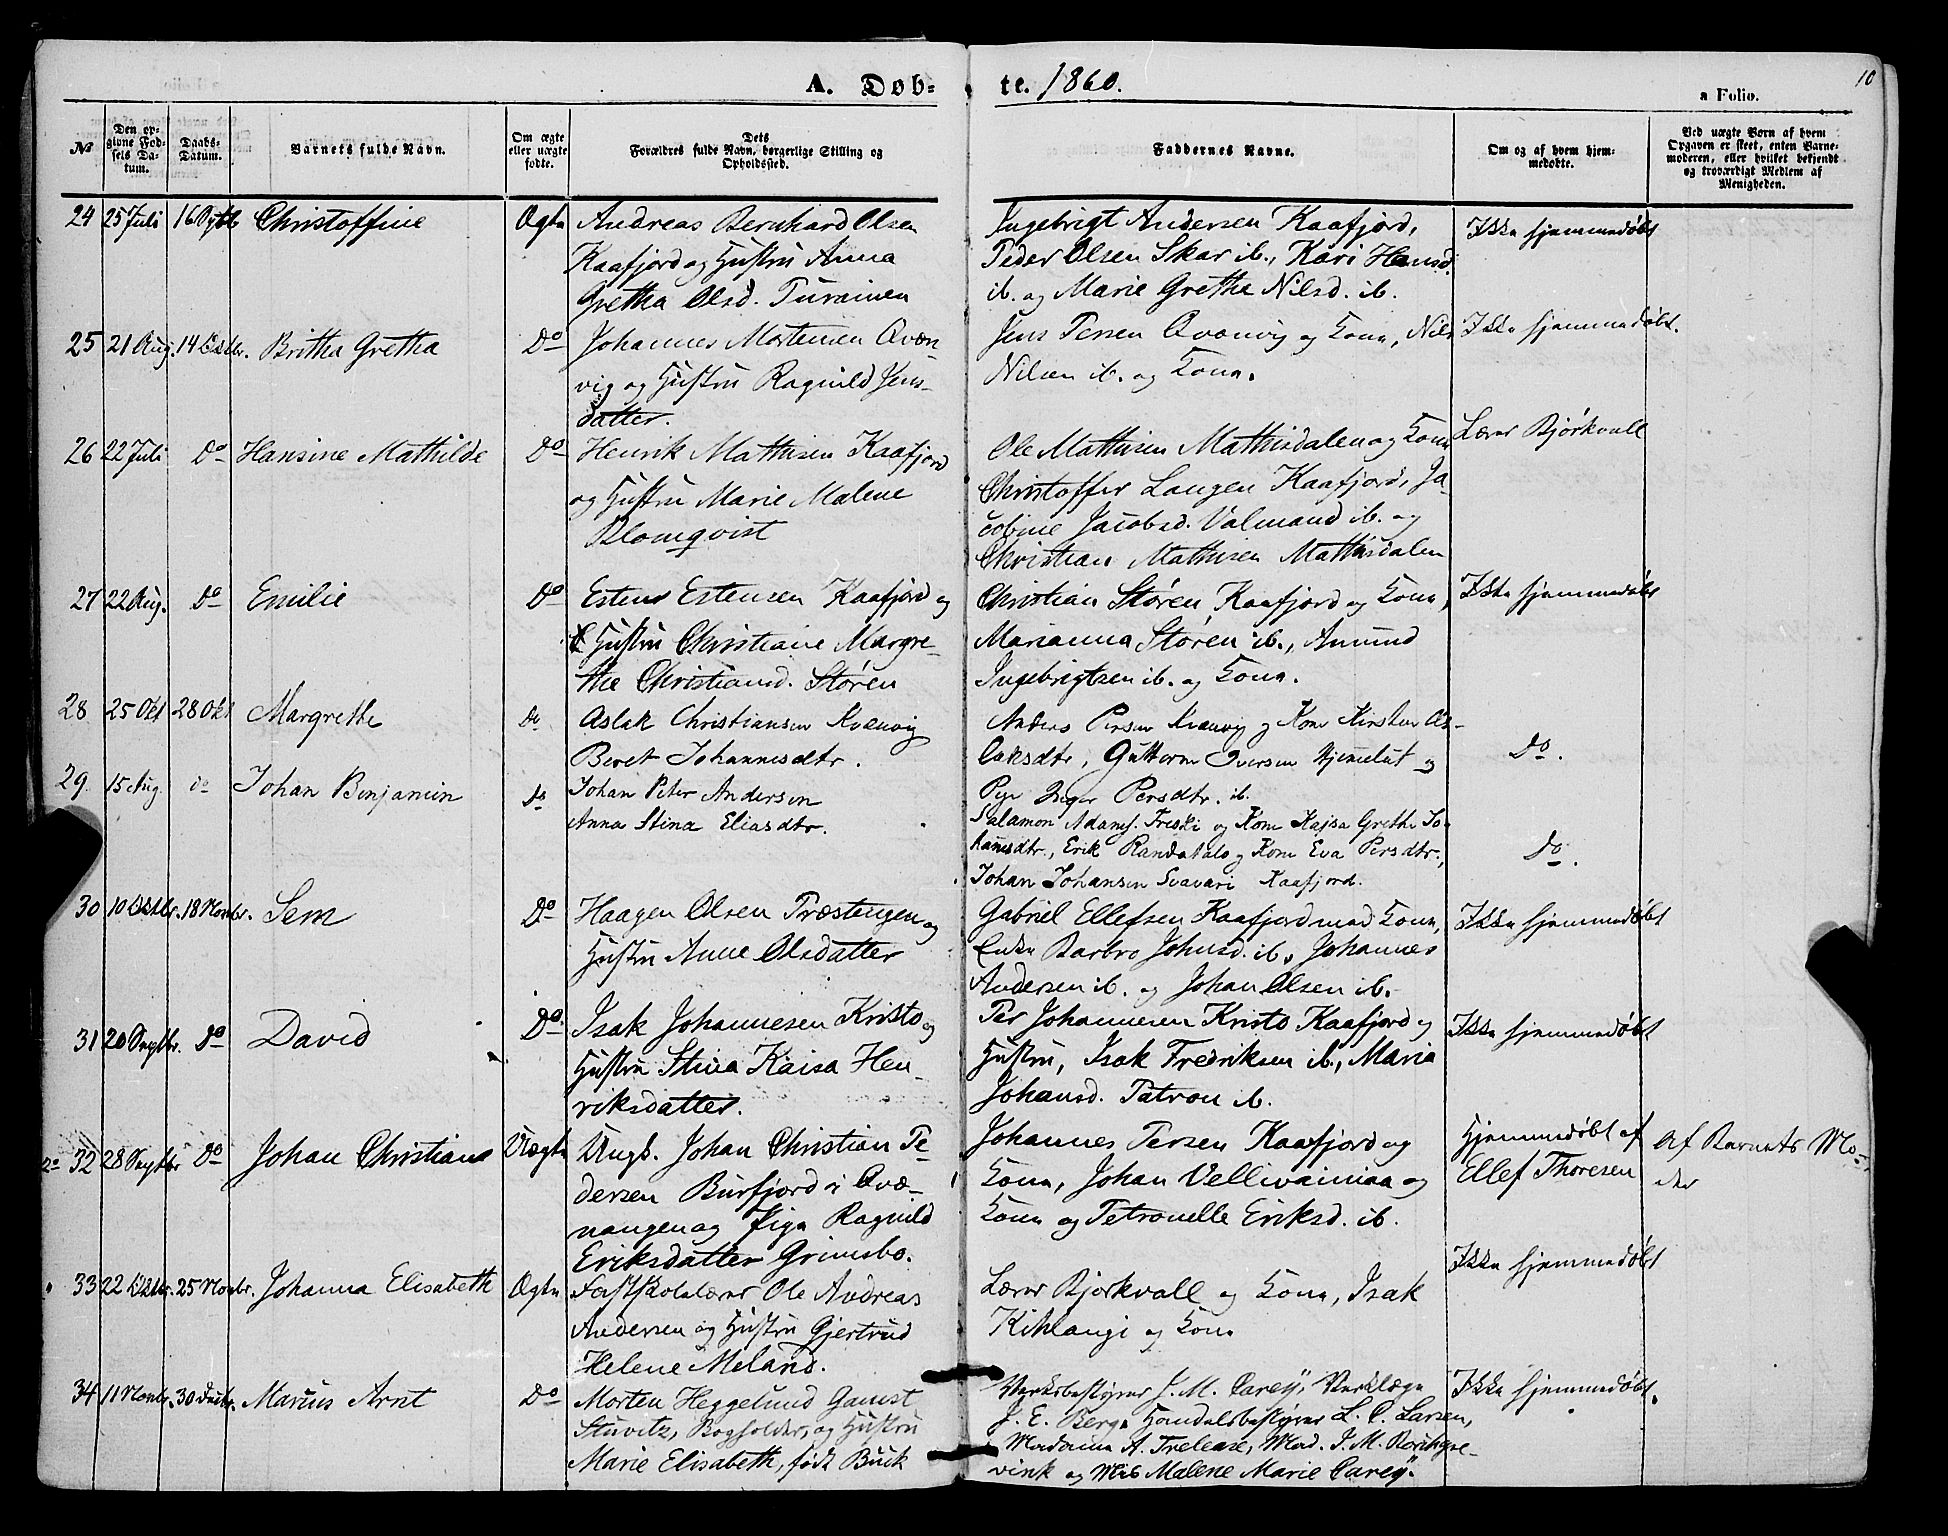 A. Døb-
te. 1860.
10
a Folio.
№
Den op-
givne Fød-
sels Da-
tum.
Daabs-
Datum.
Barnets fulde Navn.
Om ægte
eller uægte
fødte.
Dets
Forældres fulde Navn, borgerlige Stilling og
Opholdssted.
Faddernes Navne.
Om og af hvem hjem-
medøbte.
Ved uægte Børn af hvem
Opgaven er skeet, enten Barne-
moderen, eller hvilket bekjendt
og troværdigt Medlem af
Menigheden.
24
25 Juli
16 Septb
Christoffine
Ægte
Andreas Bernhard Olsen
Kaafjord og Hustru Anna
Gretha Olsd. Turainen
Ingebrigt Andersen Kaafjord,
Peder Olsen Skar ib., Kari Hansd.
ib. og Marie Grethe Nilsd. ib.
Ikke hjemmedøbt
25
21 Aug.
14 Oktbr.
Britha Gretha
Do
Johannes Mortensen Qvæn-
vig og Hustru Ragnild Jens-
datter.
Jens Persen Qvænvig og Kone, Nils
Nilsen ib. og Kone.
Ikke hjemmedøbt.
26
22 Juli
Do
Hansine Mathilde
Do
Henrik Mathisen Kaafjord
og Hustru Marie Malene
Blomqvist
Ole Mathisen Mathisdalen og Kone
Christoffer Langen Kaafjord, Ja-
cobine Jacobsd. Valmand ib. og
Christian Mathisen Mathisdalen
Lærer Bjørkvall
27
22 Aug.
Do
Emilie
Do
Esten Estensen Kaafjord og
Hustru Christiane Margre-
the Christiansd. Støren
Christian Støren Kaafjord og Kone,
Marianna Støren ib., Amund
Ingebrigtsen ib. og Kone.
Ikke hjemmedøbt
28
25 Okt
28 Okt
Margrethe
do
Aslak Christiansen Kvænvig
Beret Johannesdtr.
Anders Persen Kvænvig og Kone Kirsten As-
laksdtr, Guttorm Iversen Hjemmeluft og
Pige Inger Persdtr. ib.
Do.
29.
15 Aug.
do
Johan Benjamin
do
Johan Peter Andersen
Anna Stina Eliasdtr.
Salamon Adams. Freski og Kone Kajsa Grethe Jo-
hannsdtr., Erik Randatalo og Kone Eva Persdtr.,
Johan Johansen Svavari Kaafjord.
Do.
30
10 Oktbr.
18 Novbr.
Sem
Do
Haagen Olsen Træstengen og
Hustru Anne Olsdatter
Gabriel Ellefsen Kaafjord med Kone,
Enke Barbro Johnsd. ib., Johannes
Andersen ib. og Johan Olsen ib.
Ikke hjemmedøbt
31
20 Septbr.
Do
David
Do
Isak Johannesen Kristo og
Hustru Stina Kaisa Hen-
riksdatter.
Per Johannesen Kristo Kaafjord og
Hustru, Isak Fredriksen ib., Maria
Johansd. Patron ib.
Ikke hjemmedøbt
32
28 Septbr
Do
Johan Christian
Uægte
Ungk. Johan Christian Pe-
dersen Burfjord i Qvæ-
nangen og Pige Ragnild
Eriksdatter Grimsbo.
Johannes Persen Kaafjord og
Kone, Johan Vellivainiaa og
Kone og Petronelle Eriksd. ib.
Hjemmedøbt af
Ellef Thoresen
Af Barnets Mo-
der
33
22 Oktbr.
25 Novbr.
Johanna Elisabeth
Ægte
Fastskolelærer Ole Andreas
Andersen og Hustru Gjertrud
Helene Meland.
Lærer Bjørkvall og Kone, Isak
Kihlangi og Kone
Ikke hjemmedøbt
34
11 Novbr.
30 Decbr.
Marius Arnt
Do
Morten Heggelund Gamst
Stuvitz, Bogholder, og Hustru
Marie Elisabeth, født Buck
Verksbestyrer J. M. Carey, Verklæge
J. E. Berg, Handelsbestyrer L. C. Larsen,
Madame A. Trelease, Mad. J. M. Borchgre-
vink og Mis Malene Marie Carey.
Ikke hjemmedøbt.